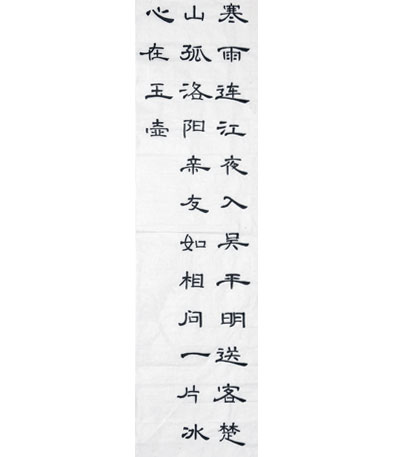 寒雨连江夜入吴平明送客楚
山孤洛阳亲友如相问一片冰
心在玉壶